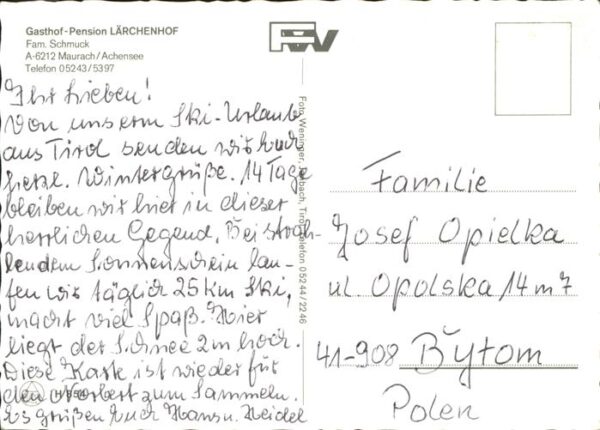 Gasthof-Pension LÄRCHENHOF
Fam. Schmuck
A-6212 Maurach/Achensee
Telefon 05243/5397
Ihr Lieben!
Von unserm Ski-Urlaub
aus Tirol senden wir Euch
herzl. Wintergrüße. 14 Tage
bleiben wir hier in dieser
herrlichen Gegend. Bei strah-
lendem Sonnenschein lau-
fen wir täglich 25 km Ski,
macht viel Spaß. Hier
liegt der Schnee 2m hoch.
Diese Karte ist wieder für
den Norbert zum Sammeln.
Es grüßen Euch Hans u. Heidel
Foto Weninger, Tirol, Telefon 05244/2246
Familie
Josef Opielka
ul. Opolska 14 m 7
41-908 Bytom
Polen